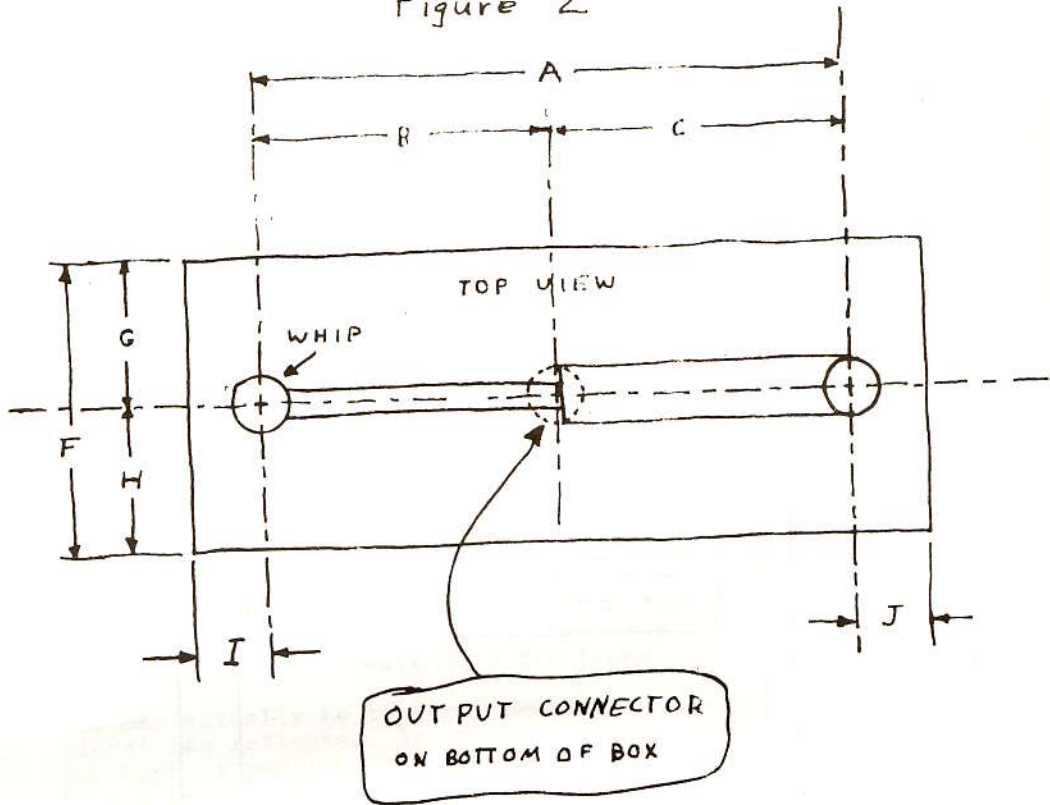 Figure 2
A
B
C
TOP VIEW
G
WHIP
F
H
I
J
OUTPUT CONNECTOR
ON BOTTOM OF BOX